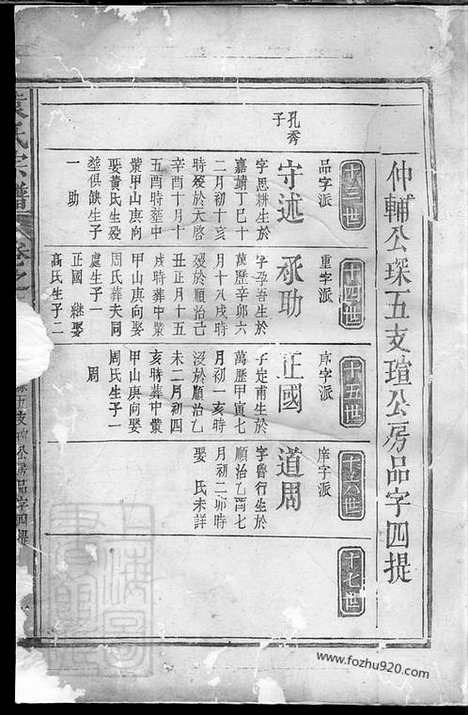 仲輔公琛五支瑄公房品字四提
十三世
品字派
孔秀子
守述
字思耕生於
嘉靖丁巳十
二月初十亥
時歿於天啟
辛酉十月十
五酉時葬中
叢甲山庚向
娶黃氏生歿
塟俱缺生子
一 助
十四世
重字派
承助
字孕吾生於
萬歷辛卯六
月十八戌時
歿於順治己
丑正月十五
戌時葬中叢
甲山庚向娶
周氏葬夫同
處生子一
正國 繼娶
高氏生子二
十五世
序字派
正國
子定甫生於
萬歷甲寅七
月初一亥時
歿於順治乙
未二月初四
亥時葬中叢
甲山庚向娶
周氏生子一
周
十六世
庠字派
道周
字魯行生於
順治乙酉七
月初二卯時
娶 氏未詳
十七世
氏宗譜 卷之
五支瑄公房品字四提
www.fozhu920.com